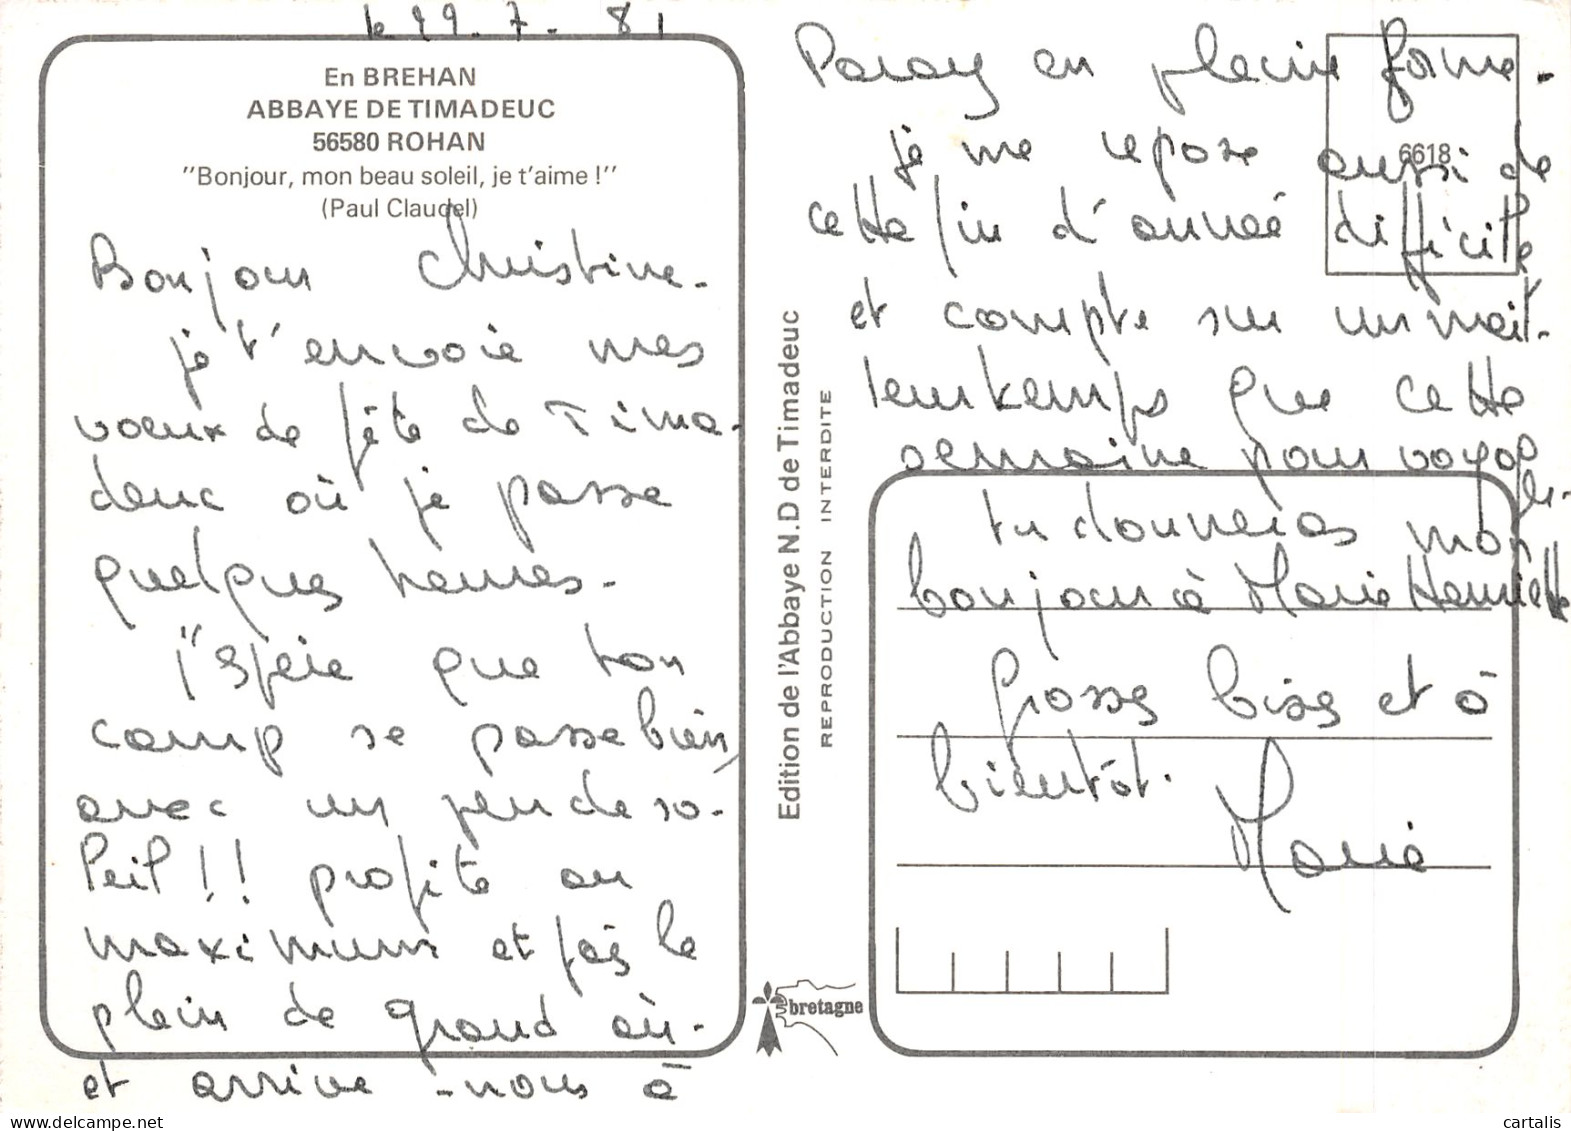 le 22.7.81
En BREHAN
ABBAYE DE TIMADEUC
56580 ROHAN
"Bonjour, mon beau soleil, je t'aime !"
(Paul Claudel)
Bonjour Christine.
je t'envoie mes
voeux de fête de Tima-
deuc où je passe
quelques heures.
J'espère que ton
camp se passe bien,
avec un peu de so-
leil !! profite au
maximum et fais le
plein de grand air
et arrive-nous à
Edition de l'Abbaye N.D de Timadeuc
REPRODUCTION INTERDITE
bretagne
Paray en pleine forme.
6618
je me repose aussi de
cette fin d'année difficile
et compte sur un meil-
leur temps que cette
semaine pour
tu donneras mon
bonjour à Marie Henriette
Grosses bises et à
bientôt.
Marie
cartalis
www.delcampe.net